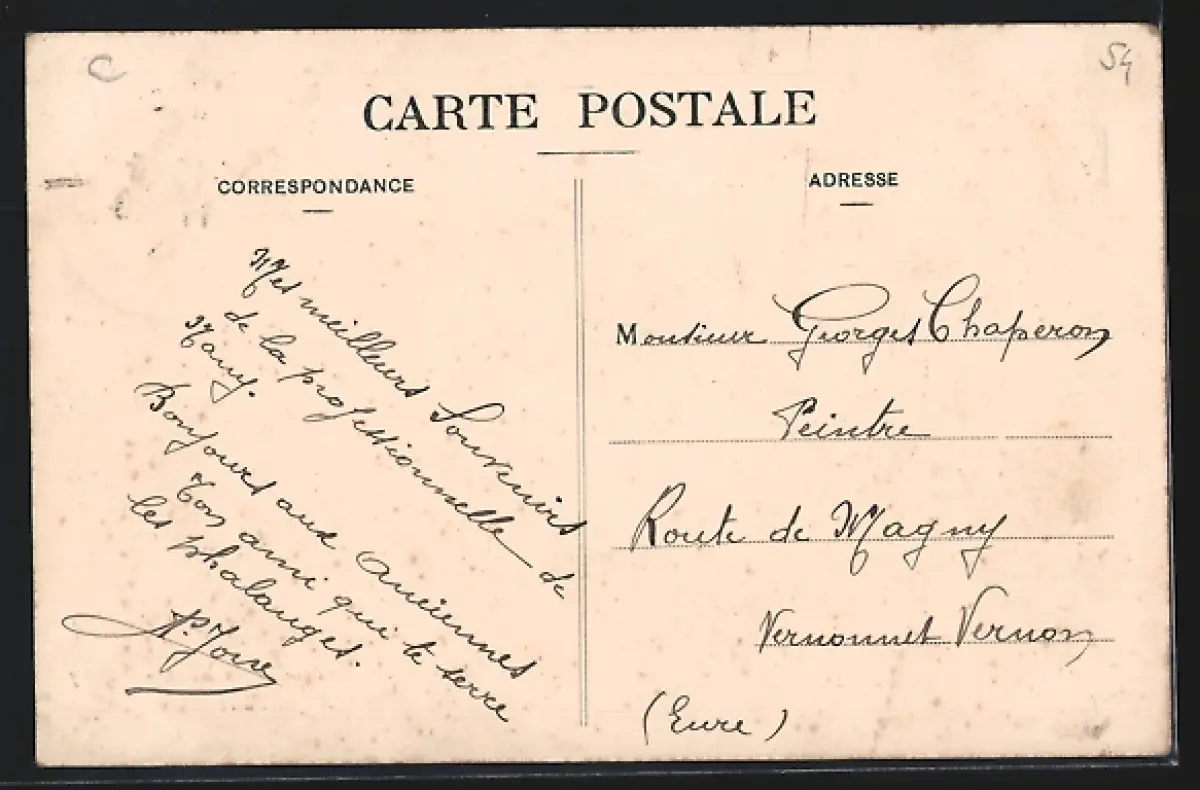 C
54
CARTE POSTALE
CORRESPONDANCE
Mes meilleurs Souvenirs
de la professionnelle de
Nancy.
Bonjours aux anciennes
Ton ami qui te serre
les phalanges.
ADRESSE
Monsieur Georges Chaperon
Peintre
Route de Magny
Vernonnet Vernon
(Eure)